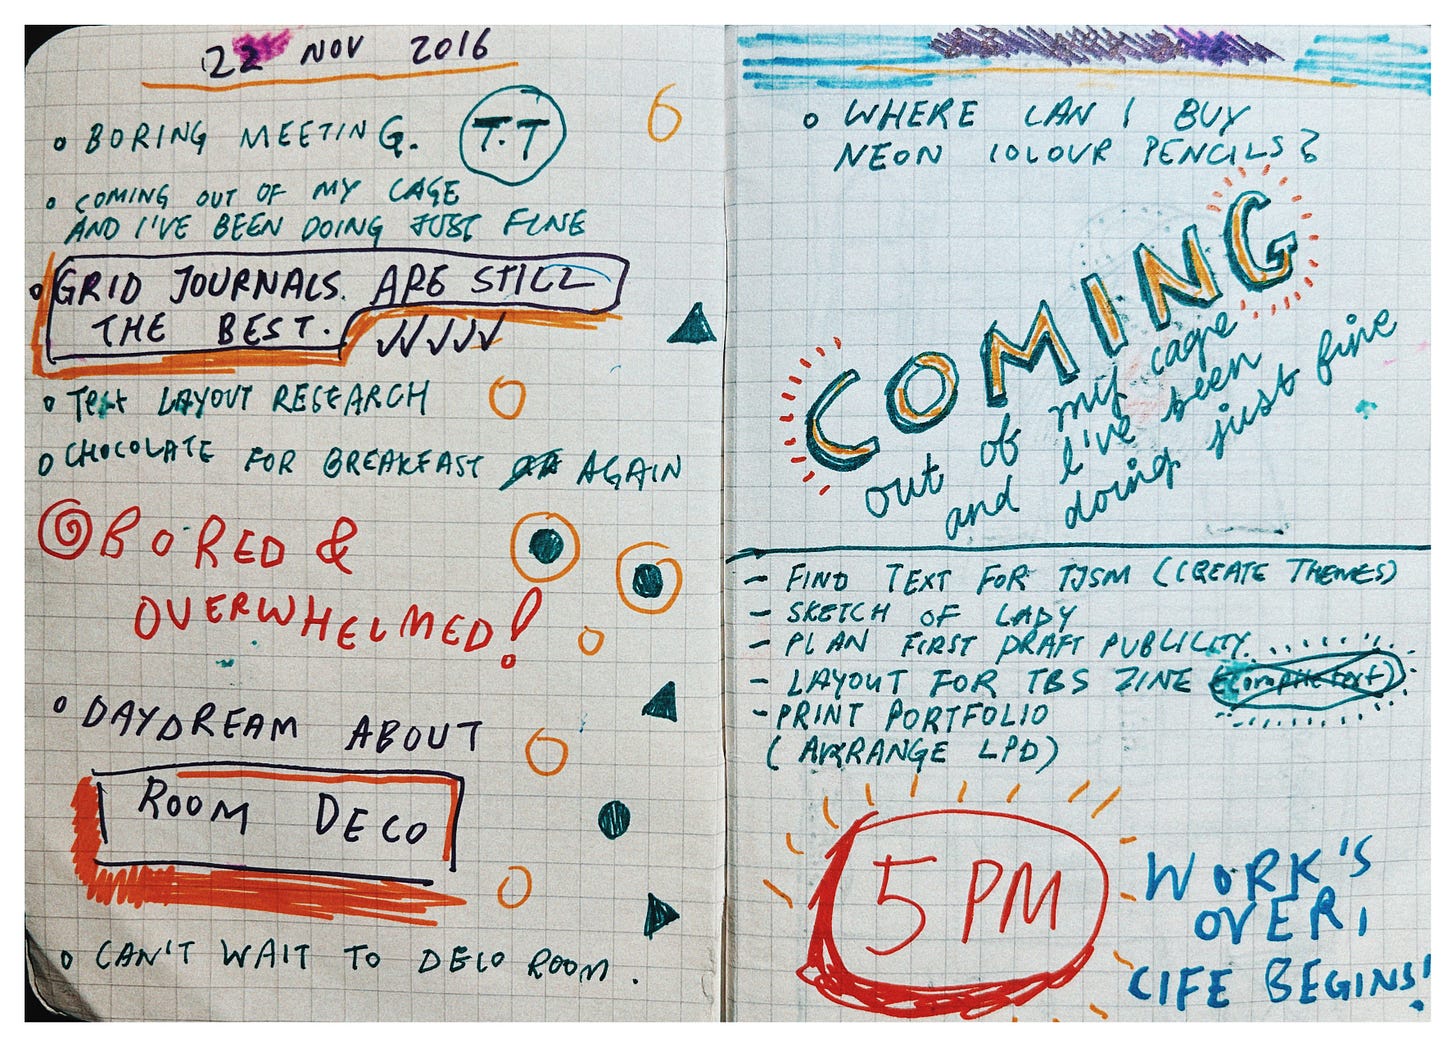 22 NOV 2016
BORING MEETING. T.T
COMING OUT OF MY CAGE
AND I'VE BEEN DOING JUST FINE
GRID JOURNALS. ARE STILL
THE BEST.
TEXT LAYOUT RESEARCH
CHOCOLATE FOR BREAKFAST AGAIN
BORED &
OVERWHELMED!
DAYDREAM ABOUT
ROOM DECO
CAN'T WAIT TO DECO ROOM.
WHERE CAN I BUY
NEON COLOUR PENCILS?
COMING
out of my cage
and I've been
doing just fine
- FIND TEXT FOR TJSM (CREATE THEMES)
- SKETCH OF LADY
- PLAN FIRST DRAFT PUBLICITY
- LAYOUT FOR TBS ZINE (compile text)
- PRINT PORTFOLIO
(ARRANGE LPD)
5 PM
WORK'S
OVER!
LIFE BEGINS!